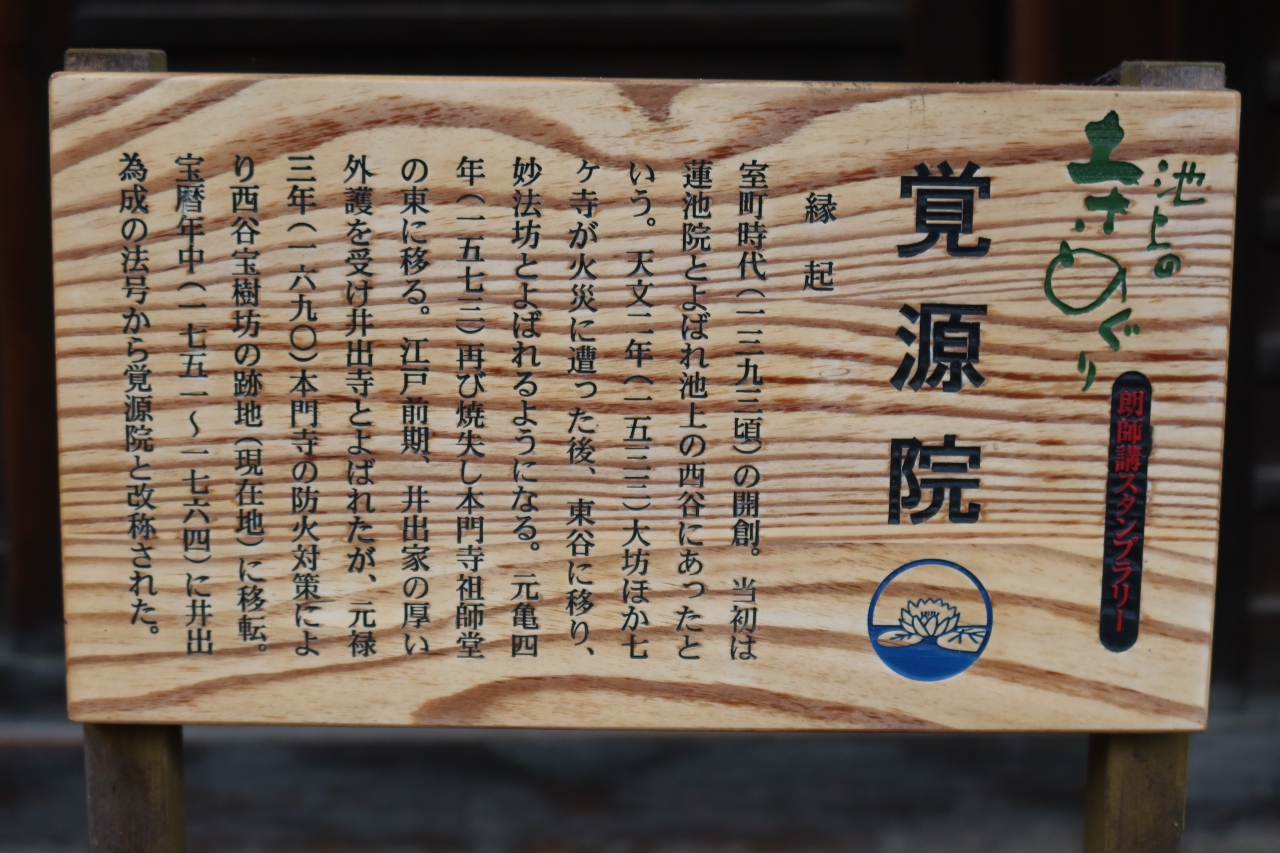 池上の
寺めぐり
朗師講スタンプラリー
覚源院
縁起
室町時代（一三九三頃）の開創。当初は
蓮池院とよばれ池上の西谷にあったと
いう。天文二年（一五三三）大坊ほか七
ヶ寺が火災に遭った後、東谷に移り、
妙法坊とよばれるようになる。元亀四
年（一五七三）再び焼失し本門寺祖師堂
の東に移る。江戸前期、井出家の厚い
外護を受け井出寺とよばれたが、元禄
三年（一六九〇）本門寺の防火対策によ
り西谷宝樹坊の跡地（現在地）に移転。
宝暦年中（一七五一～一七六四）に井出
為成の法号から覚源院と改称された。